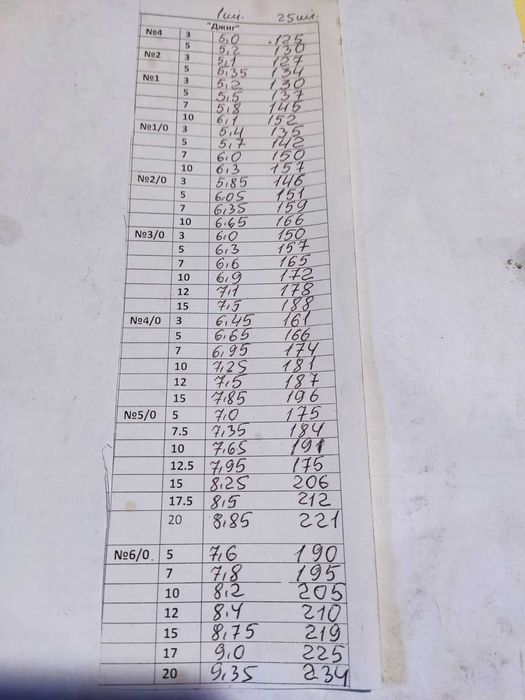 1шт. 25шт.
"Джиг"
№4 3 5,0 125
5 5,2 130
№2 3 5,1 127
5 5,35 134
№1 3 5,2 130
5 5,5 137
7 5,8 145
10 6,1 152
№1/0 3 5,4 135
5 5,7 142
7 6,0 150
10 6,3 157
№2/0 3 5,85 146
5 6,05 151
7 6,35 159
10 6,65 166
№3/0 3 6,0 150
5 6,3 157
7 6,6 165
10 6,9 172
12 7,1 178
15 7,5 188
№4/0 3 6,45 161
5 6,65 166
7 6,95 174
10 7,25 181
12 7,5 187
15 7,85 196
№5/0 5 7,0 175
7.5 7,35 184
10 7,65 191
12.5 7,95 175
15 8,25 206
17.5 8,5 212
20 8,85 221
№6/0 5 7,6 190
7 7,8 195
10 8,2 205
12 8,4 210
15 8,75 219
17 9,0 225
20 9,35 234